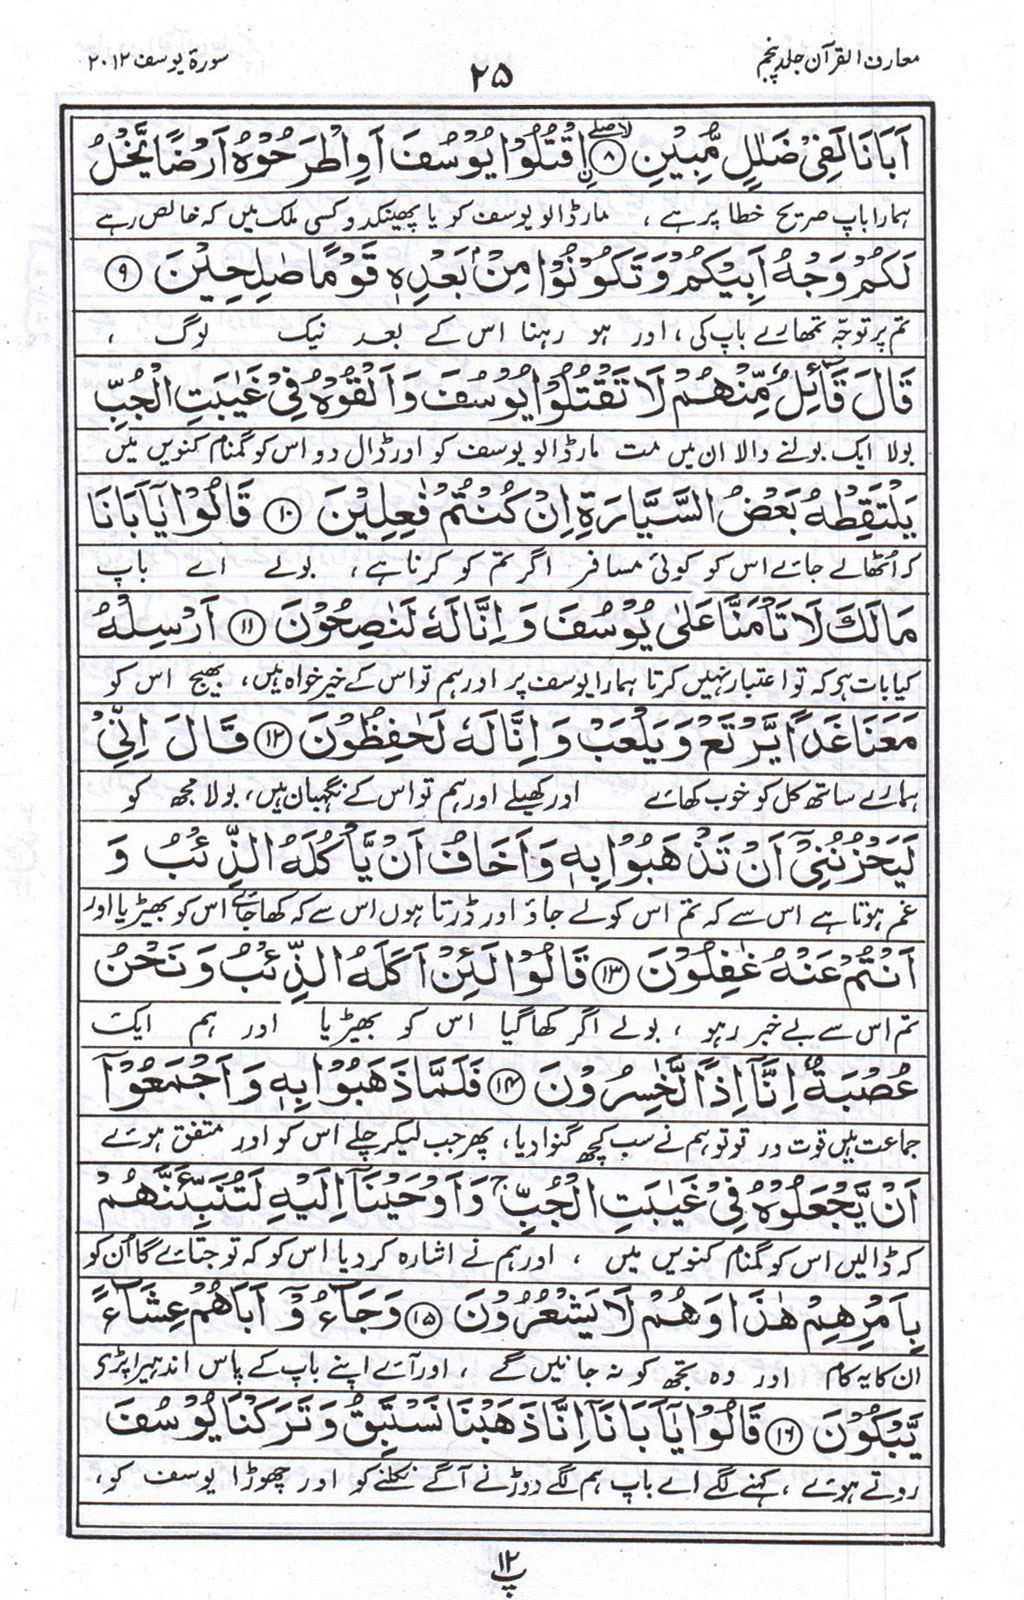 معارف القرآن جلد پنجم
۲۵
سورۃ یوسف ۱۲:۲۰
اَبَانَا لَفِیْ ضَلٰلٍ مُّبِیْنِ ۝۸ اِۨقْتُلُوْا یُوْسُفَ اَوِ اطْرَحُوْهُ اَرْضًا یَّخْلُ
ہمارا باپ صریح خطا پر ہے ، مار ڈالو یوسف کو یا پھینک دو کسی ملک میں کہ خالص رہے
لَكُمْ وَجْهُ اَبِیْكُمْ وَتَكُوْنُوْا مِنْۢ بَعْدِهٖ قَوْمًا صٰلِحِیْنَ ۝۹
تم پر توجّہ تمھارے باپ کی ، اور ہو رہنا اس کے بعد نیک لوگ ،
قَالَ قَآئِلٌ مِّنْهُمْ لَا تَقْتُلُوْا یُوْسُفَ وَاَلْقُوْهُ فِیْ غَیٰبَتِ الْجُبِّ
بولا ایک بولنے والا ان میں مت مار ڈالو یوسف کو اور ڈال دو اس کو گمنام کنویں میں
یَلْتَقِطْهُ بَعْضُ السَّیَّارَةِ اِنْ كُنْتُمْ فٰعِلِیْنَ ۝۱۰ قَالُوْا یٰۤاَبَانَا
کہ اُٹھا لے جائے اس کو کوئی مسافر اگر تم کو کرنا ہے ، بولے اے باپ
مَالَكَ لَا تَاْمَنَّا عَلٰی یُوْسُفَ وَ اِنَّا لَهٗ لَنٰصِحُوْنَ ۝۱۱ اَرْسِلْهُ
کیا بات ہے کہ تو اعتبار نہیں کرتا ہمارا یوسف پر اور ہم تو اس کے خیر خواہ ہیں ، بھیج اس کو
مَعَنَا غَدًا یَّرْتَعْ وَیَلْعَبْ وَ اِنَّا لَهٗ لَحٰفِظُوْنَ ۝۱۲ قَالَ اِنِّیْ
ہمارے ساتھ کل کو خوب کھائے اور کھیلے اور ہم تو اس کے نگہبان ہیں ، بولا مجھ کو
لَیَحْزُنُنِیْۤ اَنْ تَذْهَبُوْا بِهٖ وَاَخَافُ اَنْ یَّاْكُلَهُ الذِّئْبُ وَ
غم ہوتا ہے اس سے کہ تم اس کو لے جاؤ اور ڈرتا ہوں اس سے کہ کھا جائے اس کو بھیڑیا اور
اَنْتُمْ عَنْهُ غٰفِلُوْنَ ۝۱۳ قَالُوْا لَئِنْ اَكَلَهُ الذِّئْبُ وَنَحْنُ
تم اس سے بے خبر رہو ، بولے اگر کھا گیا اس کو بھیڑیا اور ہم ایک
عُصْبَةٌ اِنَّاۤ اِذًا لَّخٰسِرُوْنَ ۝۱۴ فَلَمَّا ذَهَبُوْا بِهٖ وَاَجْمَعُوْۤا
جماعت ہیں قوت ور تو تو ہم نے سب کچھ گنوا دیا ، پھر جب لیکر چلے اس کو اور متفق ہوئے
اَنْ یَّجْعَلُوْهُ فِیْ غَیٰبَتِ الْجُبِّ ۚ وَاَوْحَیْنَاۤ اِلَیْهِ لَتُنَبِّئَنَّهُمْ
کہ ڈالیں اس کو گمنام کنویں میں ، اور ہم نے اشارہ کر دیا اس کو کہ تو جتائے گا اُن کو
بِاَمْرِهِمْ هٰذَا وَهُمْ لَا یَشْعُرُوْنَ ۝۱۵ وَجَآءُوْۤ اَبَاهُمْ عِشَآءً
ان کا یہ کام اور وہ تجھ کو نہ جانیں گے ، اور آئے اپنے باپ کے پاس اندھیرا پڑی
یَّبْكُوْنَ ۝۱۶ قَالُوْا یٰۤاَبَانَاۤ اِنَّا ذَهَبْنَا نَسْتَبِقُ وَتَرَكْنَا یُوْسُفَ
روتے ہوئے ، کہنے لگے اے باپ ہم لگے دوڑنے آگے نکلنے کو اور چھوڑا یوسف کو ،
۱۲
پ